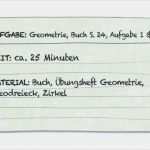 UFGABE: Geometrie, Buch S. 24, Aufgabe 1 &
IT: ca. 25 Minuten
ATERIAL: Buch, Übungsheft Geometrie,
eodreieck, Zirkel